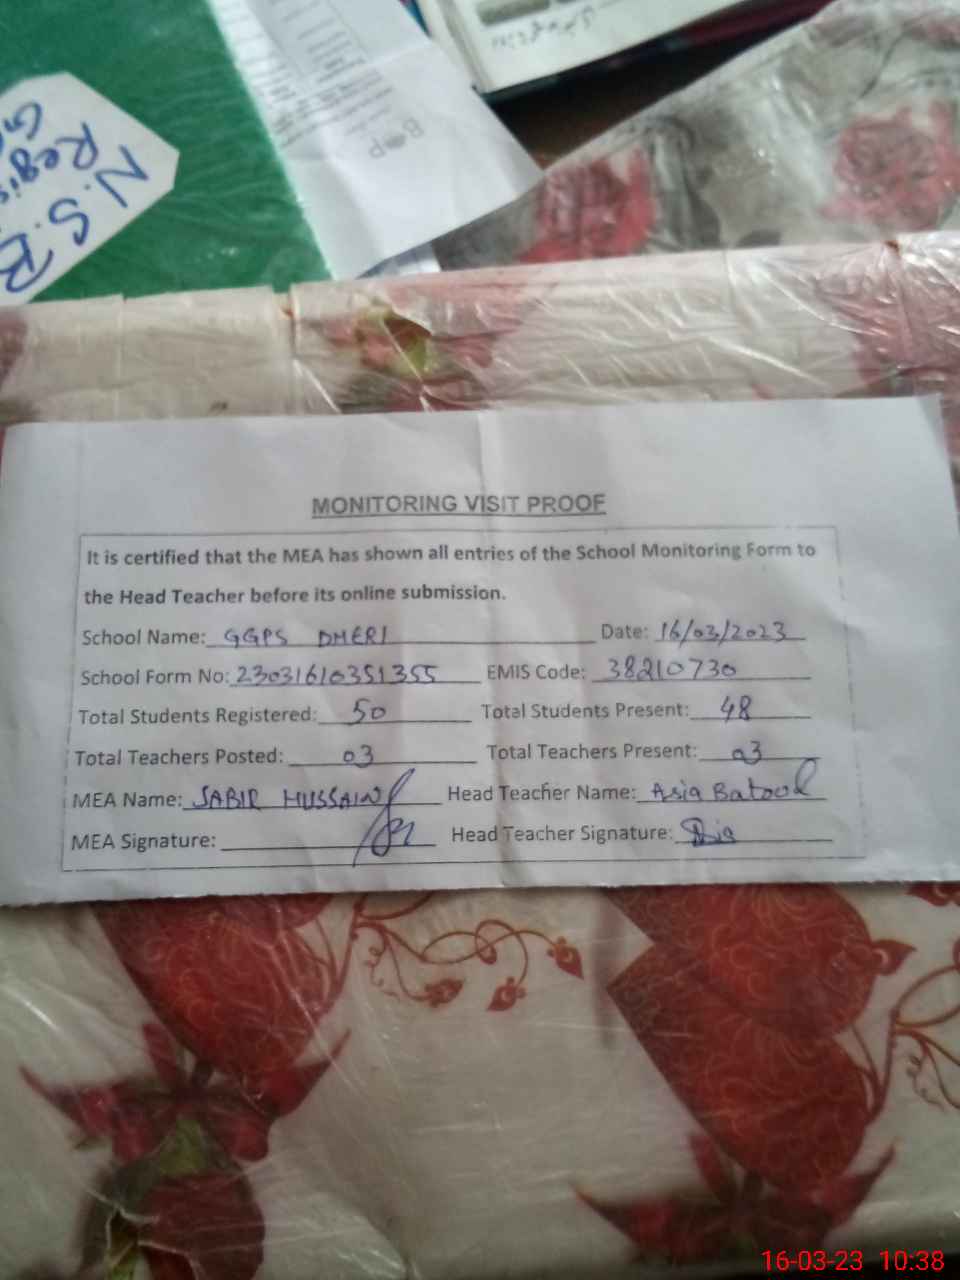 N.S.B
Regis
B P
MONITORING VISIT PROOF
It is certified that the MEA has shown all entries of the School Monitoring Form to
the Head Teacher before its online submission.
School Name: GGPS DHERI Date: 16/03/2023
School Form No: 23031610351355 EMIS Code: 38210730
Total Students Registered: 50 Total Students Present: 48
Total Teachers Posted: 03 Total Teachers Present: 03
MEA Name: SABIR HUSSAIN Head Teacher Name: Asia Batool
MEA Signature: Head Teacher Signature: Asia
16-03-23 10:38